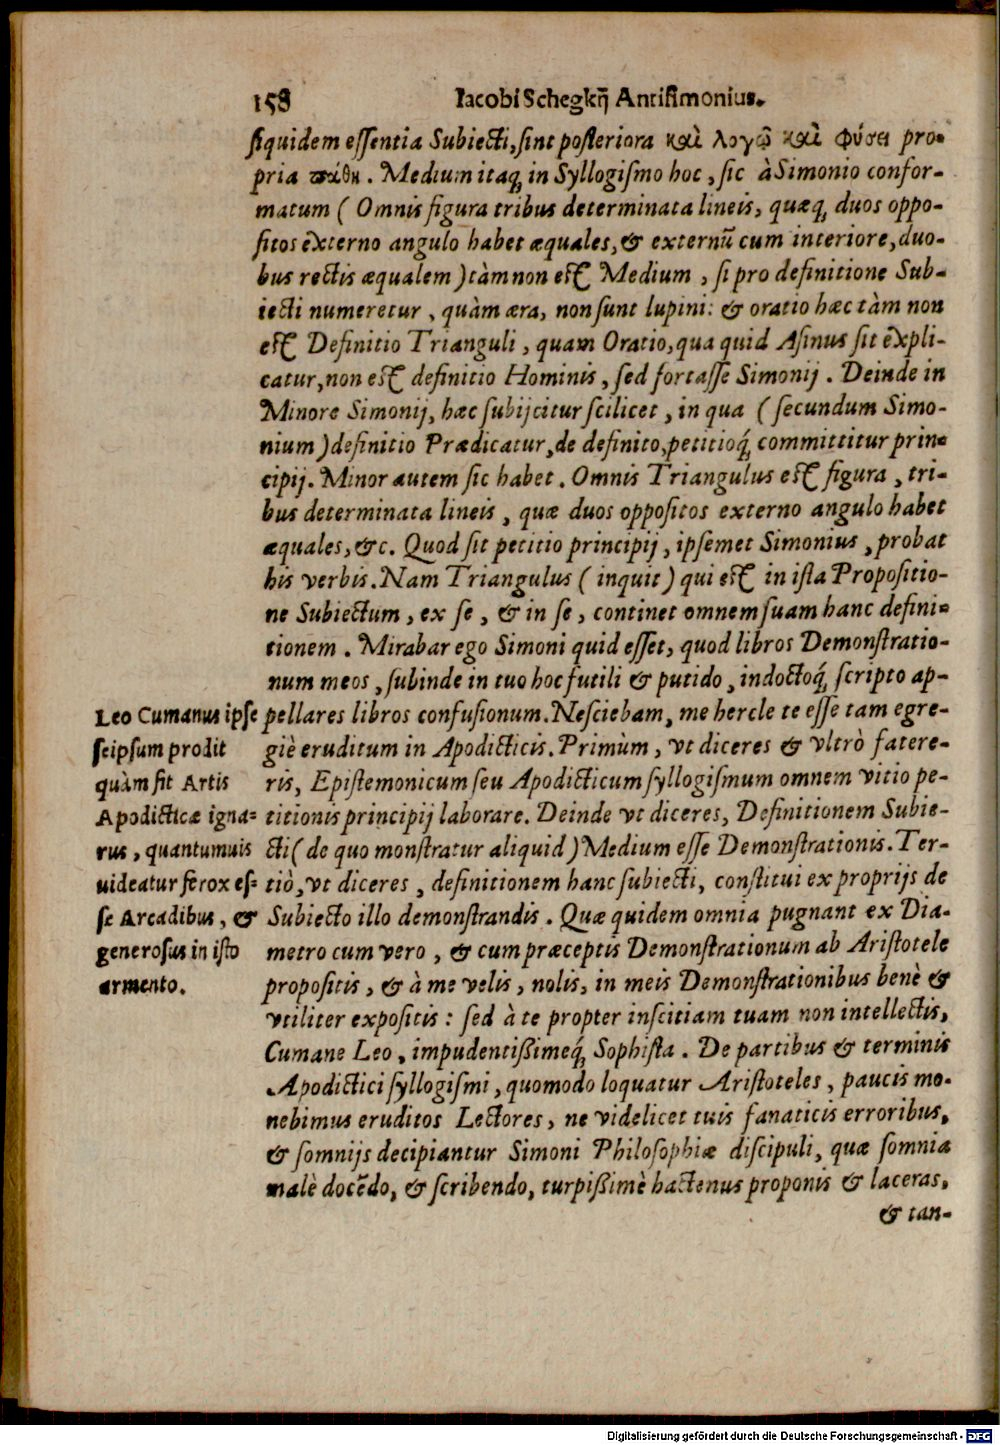 158 Iacobi Schegkij Antisimonius.
siquidem essentia Subiecti, sint posteriora καὶ λογῶ καὶ φύσει pro-
pria πάθη. Medium itaq́; in Syllogismo hoc, sic à Simonio confor-
matum (Omnis figura tribus determinata lineis, quæq́; duos oppo-
sitos externo angulo habet æquales, & externũ cum interiore, duo-
bus rectis æqualem) tàm non est Medium, si pro definitione Sub-
iecti numeretur, quàm æra, non sunt lupini: & oratio hæc tàm non
est Definitio Trianguli, quam Oratio, qua quid Asinus sit expli-
catur, non est definitio Hominis, sed fortasse Simonij. Deinde in
Minore Simonij, hæc subijcitur scilicet, in qua (secundum Simo-
nium) definitio Prædicatur, de definito, petitioq́; committitur prin-
cipij. Minor autem sic habet. Omnis Triangulus est figura, tri-
bus determinata lineis, quæ duos oppositos externo angulo habet
æquales, &c. Quod sit petitio principij, ipsemet Simonius, probat
his verbis. Nam Triangulus (inquit) qui est in ista Propositio-
ne Subiectum, ex se, & in se, continet omnem suam hanc defini-
tionem. Mirabar ego Simoni quid esset, quod libros Demonstratio-
num meos, subinde in tuo hoc futili & putido, indoctoq́; scripto ap-
pellares libros confusionum. Nesciebam, me hercle te esse tam egre-
giè eruditum in Apodicticis. Primùm, vt diceres & vltrò fatere-
ris, Epistemonicum seu Apodicticum syllogismum omnem vitio pe-
titionis principij laborare. Deinde vt diceres, Definitionem Subie-
cti (de quo monstratur aliquid) Medium esse Demonstrationis. Ter-
tiò, vt diceres, definitionem hanc subiecti, constitui ex proprijs de
Subiecto illo demonstrandis. Quæ quidem omnia pugnant ex Dia-
metro cum vero, & cum præceptis Demonstrationum ab Aristotele
propositis, & à me velis, nolis, in meis Demonstrationibus benè &
vtiliter expositis: sed à te propter inscitiam tuam non intellectis,
Cumane Leo, impudentißimeq́; Sophista. De partibus & terminis
Apodictici syllogismi, quomodo loquatur Aristoteles, paucis mo-
nebimus eruditos Lectores, ne videlicet tuis fanaticis erroribus,
& somnijs decipiantur Simoni Philosophiæ discipuli, quæ somnia
malè docẽdo, & scribendo, turpißimè hactenus proponis & laceras,
& tan-
Leo Cumanus ipse
seipsum prodit
quàm sit Artis
Apodicticæ igna-
rus, quantumuis
videatur ferox es-
se Arcadibus, &
generosus in isto
armento.
Digitalisierung gefördert durch die Deutsche Forschungsgemeinschaft - DFG